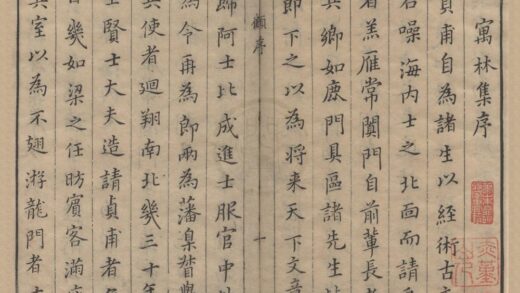 寓林集序
貞甫自為諸生以経術古
名噪海内士之北面而請
者羔雁常闐門自前輩長
鄉如鹿門具區諸先生
即下之以為将来天下文章
顧序
一
歸阿士比成進士服官中
為令再為郎兩為藩臬督
使者迴翔南北幾三十年
賢士大夫造請貞甫者
幾如梁之任昉賓客滿
室以為不翅游龍門者